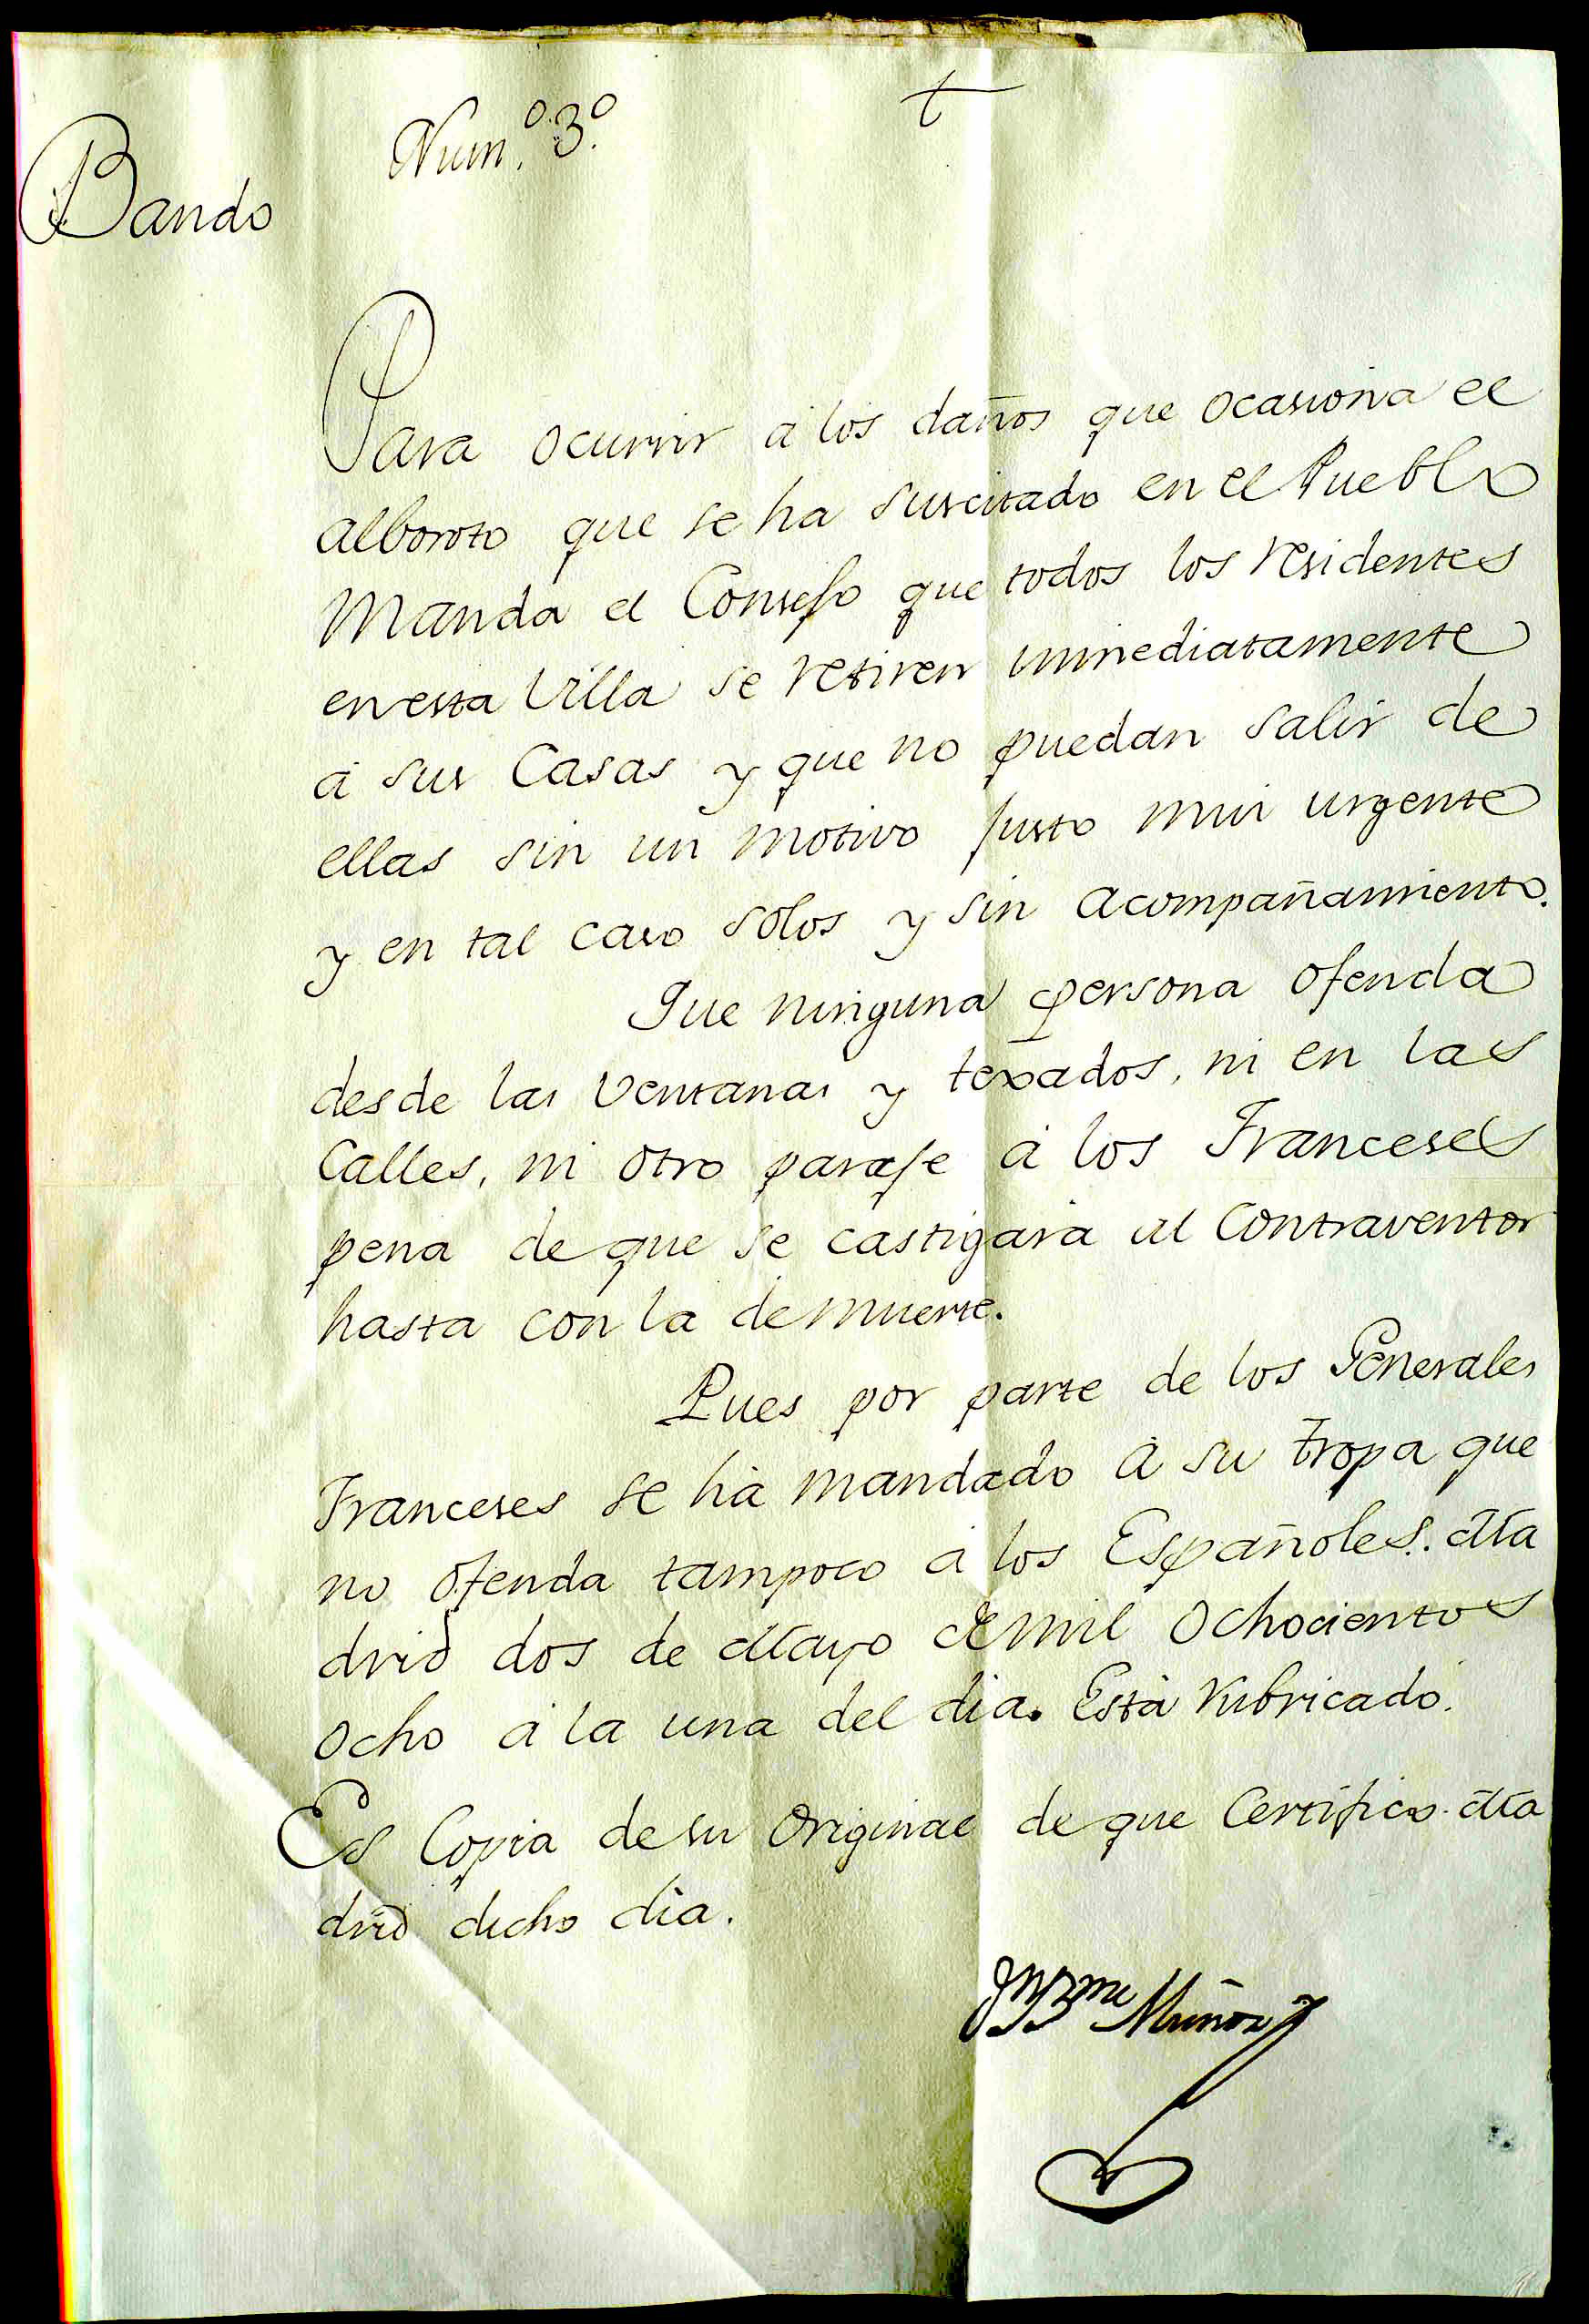 Num.º 3.º
t
Bando
Para ocurrir á los daños que ocasiona el
alboroto que se ha suscitado en el Pueblo
Manda el Consejo que todos los residentes
en esta Villa se retiren inmediatamente
á sus Casas y que no puedan salir de
ellas sin un motivo justo mui urgente
y en tal caso solos y sin acompañamiento.
Que ninguna persona ofenda
desde las Ventanas y texados, ni en las
Calles, ni otro paraje á los Franceses
pena de que se castigará al Contraventor
hasta con la de muerte.
Pues por parte de los Generales
Franceses se há mandado á su tropa que
no ofenda tampoco á los Españoles. Ma
drid dos de Mayo de mil ochocientos
ocho á la una del dia. Está rubricado.
Es Copia de su Original de que Certifico. Ma
drid dicho dia.
Muñoz